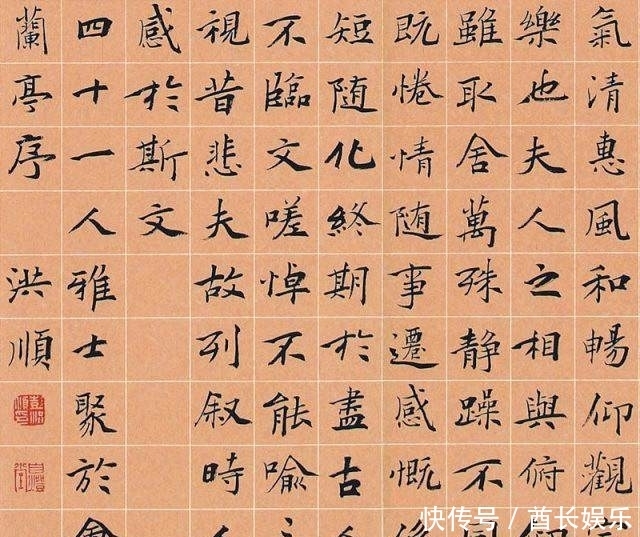 氣清惠風和暢仰觀
樂也夫人之相與俯
雖取舍萬殊靜躁不同
既惓情随事遷感慨
短随化終期於盡古人
不臨文嗟悼不能喻之
視昔悲夫故列叙時人
感於斯文
四十一人雅士聚於會
蘭亭序 洪順
快传号 / 酋长娱乐